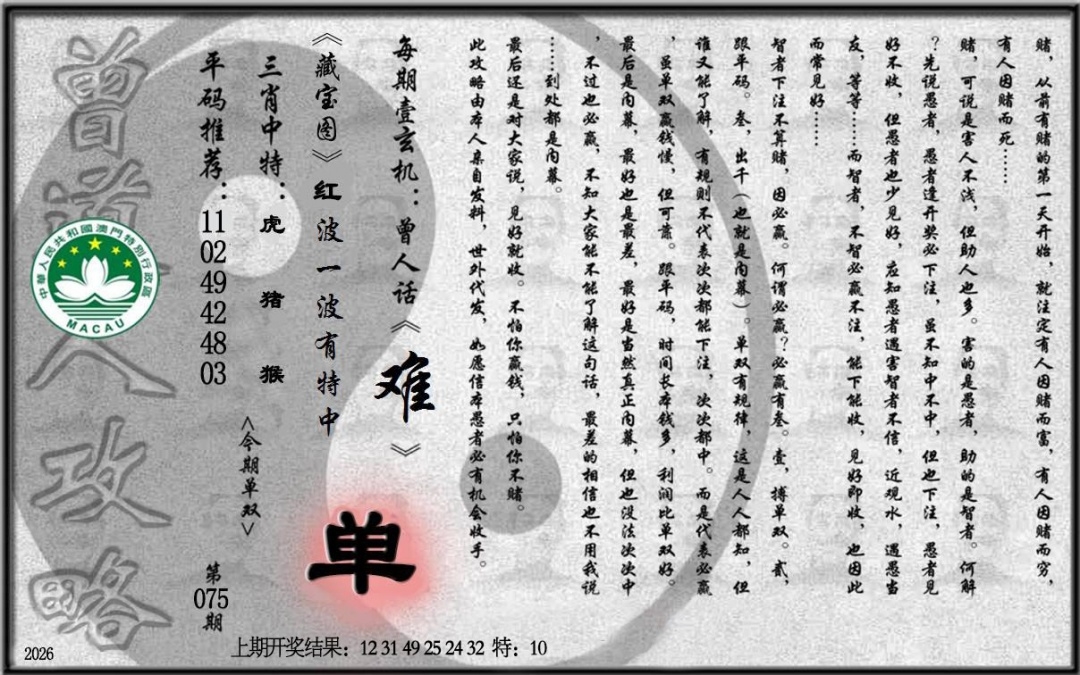 赌，从前有赌的第一天开始，就注定有人因赌而富，有人因赌而穷，
有人因赌而死……
赌，可说是害人不浅，但助人也多。害的是愚者，助的是智者。何解
？先说愚者，愚者逢开奖必下注，虽不知中不中，但也下注，愚者见
好不收，但愚者也少见好，应知愚者遇害智者不信，近观水，遇愚当
友，等等……而智者，不智必赢不注，能下能收，见好即收，也因此
而常见好……
智者下注不算赌，因必赢。何谓必赢？必赢有叁。壹，搏单双。贰，
跟平码。叁，出千（也就是内幕）。单双有规律，这是人人都知，但
谁又能了解，有规则不代表次次都能下注，次次都中。而是代表必赢
，虽单双赢钱慢，但可靠。跟平码，时间长本钱多，利润比单双好。
最后是内幕，最好也是最差，最好是当然真正内幕，但也没法次次中
，不过也必赢，不知大家能不能了解这句话，最差的相信也不用我说
……到处都是内幕。
最后还是对大家说，见好就收。不怕你赢钱，只怕你不赌。
此攻略由本人亲自发料，世外代发，如愿信本愚者必有机会收手。
每期壹玄机：曾人话《难》
《藏宝图》红波一波有特中
单
三肖中特：虎 猪 猴
<今期单双>
平码推荐：11 02 49 42 48 03
第075期
曾道人攻略
中華人民共和國澳門特別行政區
MACAU
2026
上期开奖结果：12 31 49 25 24 32 特：10